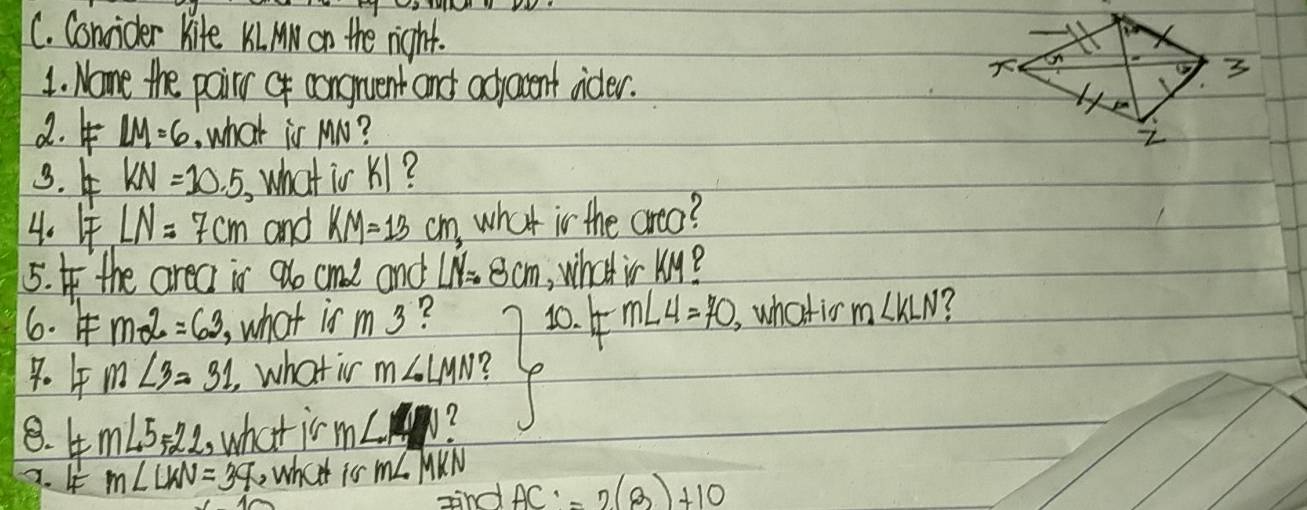 C. Consider Kite KLMN on the right.
1. Name the pairs of congruent and adjacent sides.
2. If LM=6, what is MN?
3. If KN =10.5, what is Kl?
4. If LN= 7cm and KM=13 cm, what is the area?
5. If the area is 96 cm2 and LN= 8cm, what is KM?
6. If m2 =63, what is m 3?
10. If m∠4=70, what is m∠KLN?
7. If m ∠3= 31, what is m∠LMN?
8. If m∠5=22, what is m∠ N?
9. If m∠LKN= 39, what is m∠ MKN
Find AC : = 2(8)+10
K
M
N